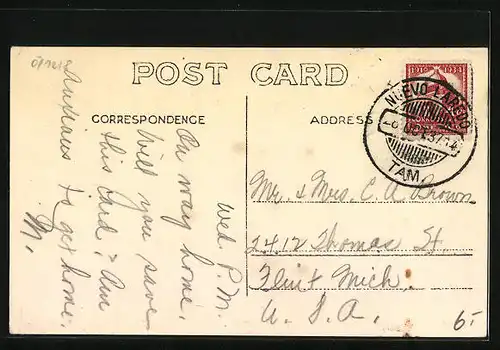 POST CARD
CORRESPONDENCE
ADDRESS
Wed P.M.
On way home.
Will you save
this card? Am
anxious to get home.
M.
Mr. & Mrs. C. A. Brown
2412 Thomas St.
Flint Mich.
U. S. A.
6.-
NUEVO LAREDO
TAM.